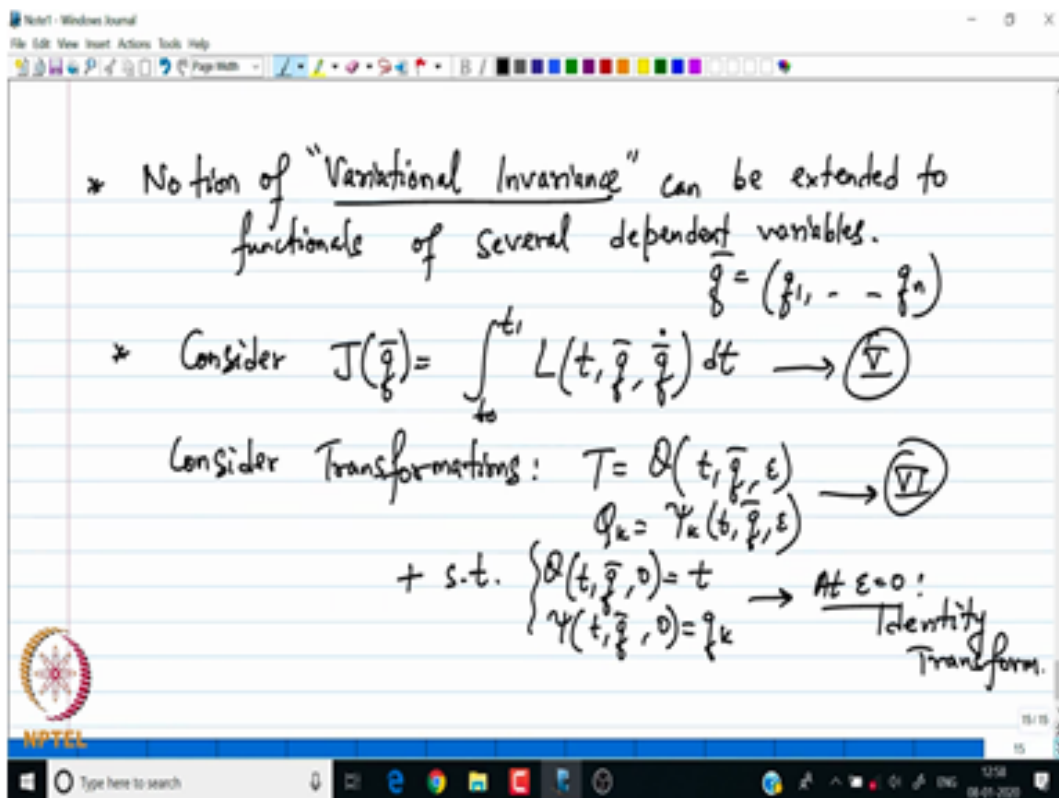 Note1 - Windows Journal
File Edit View Insert Actions Tools Help
Page Width
B I
* Notion of "Variational Invariance" can be extended to
functionals of several dependent variables.
q̄ = (q1, - - qn)
* Consider J(q̄) = ∫_{t0}^{t1} L(t, q̄, q̄̇) dt → (V)
Consider Transformations: T = θ(t, q̄, ε)
→ (VI)
Qk = Ψk(t, q̄, ε)
+ s.t. { θ(t, q̄, 0) = t → At ε=0 :
Ψ(t, q̄, 0) = qk Identity
Transform.
NPTEL
15/15
15
Type here to search
ENG
12:58
08-01-2020